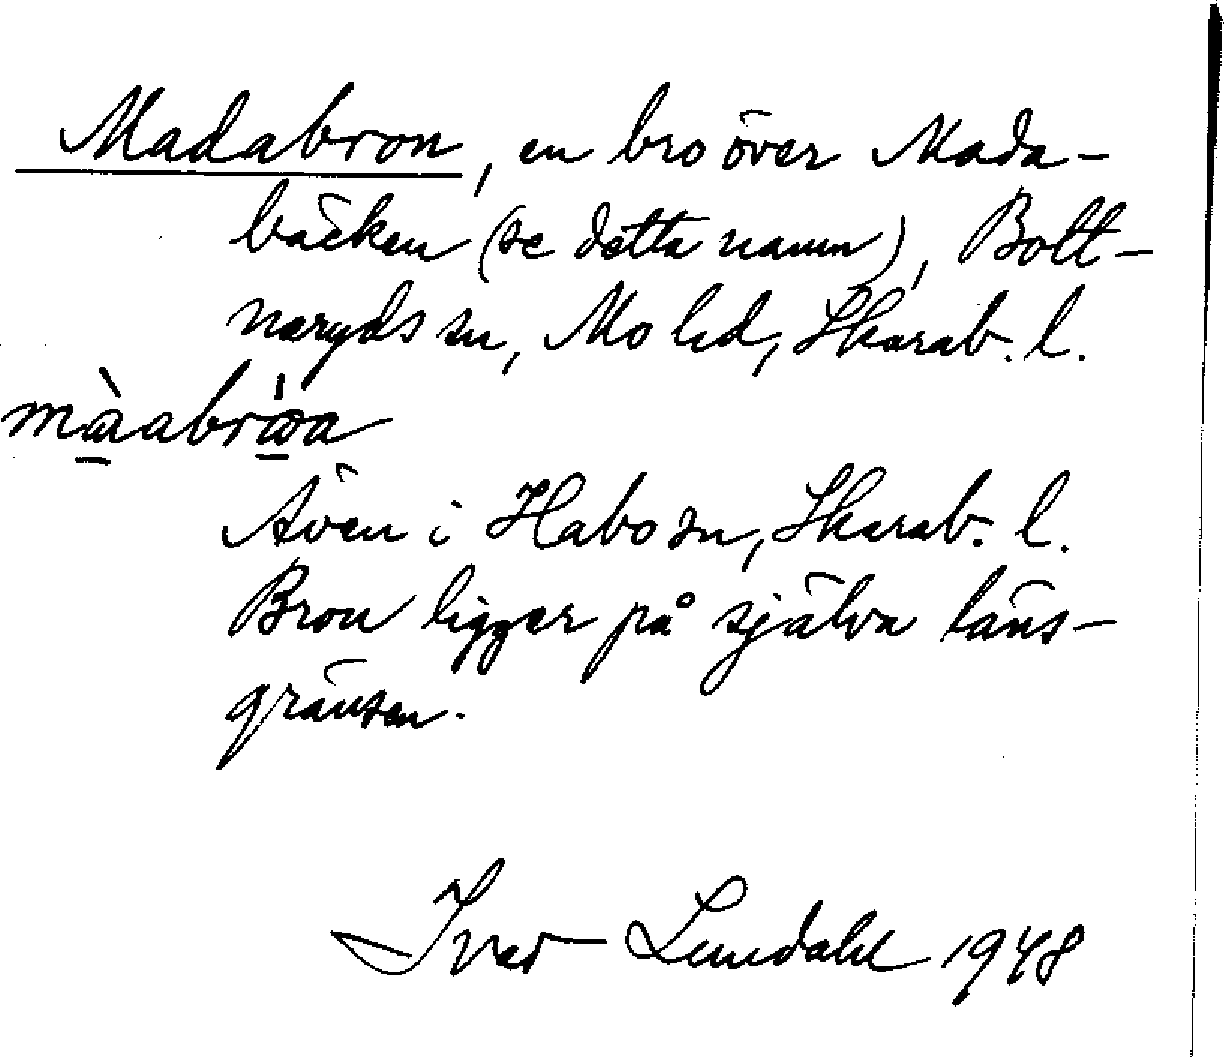 Madabron, en bro över Mada-
bäcken (se detta namn), Bott-
naryds sn, Mo hd, Skarab. l.
Även i Habo sn, Skarab. l.
Bron ligger på själva läns-
gränsen.
Ivar Lundahl 1948